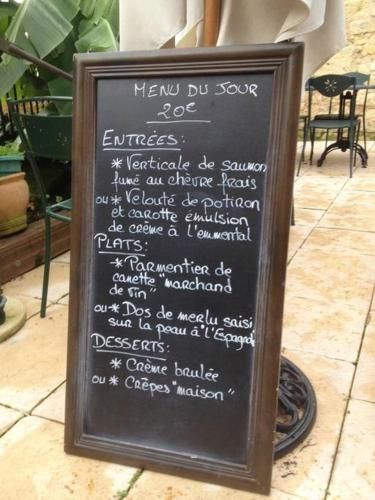 MENU DU JOUR
20€
ENTRÉES:
* Verticale de saumon
fumé au chèvre frais
ou * Velouté de potiron
et carotte émulsion
de crème à l'emmental
PLATS:
* Parmentier de
canette "marchand
de vin"
ou * Dos de merlu saisi
sur la peau à "l'Espagnole
DESSERTS:
* Crème brulée
ou * Crêpes "maison"